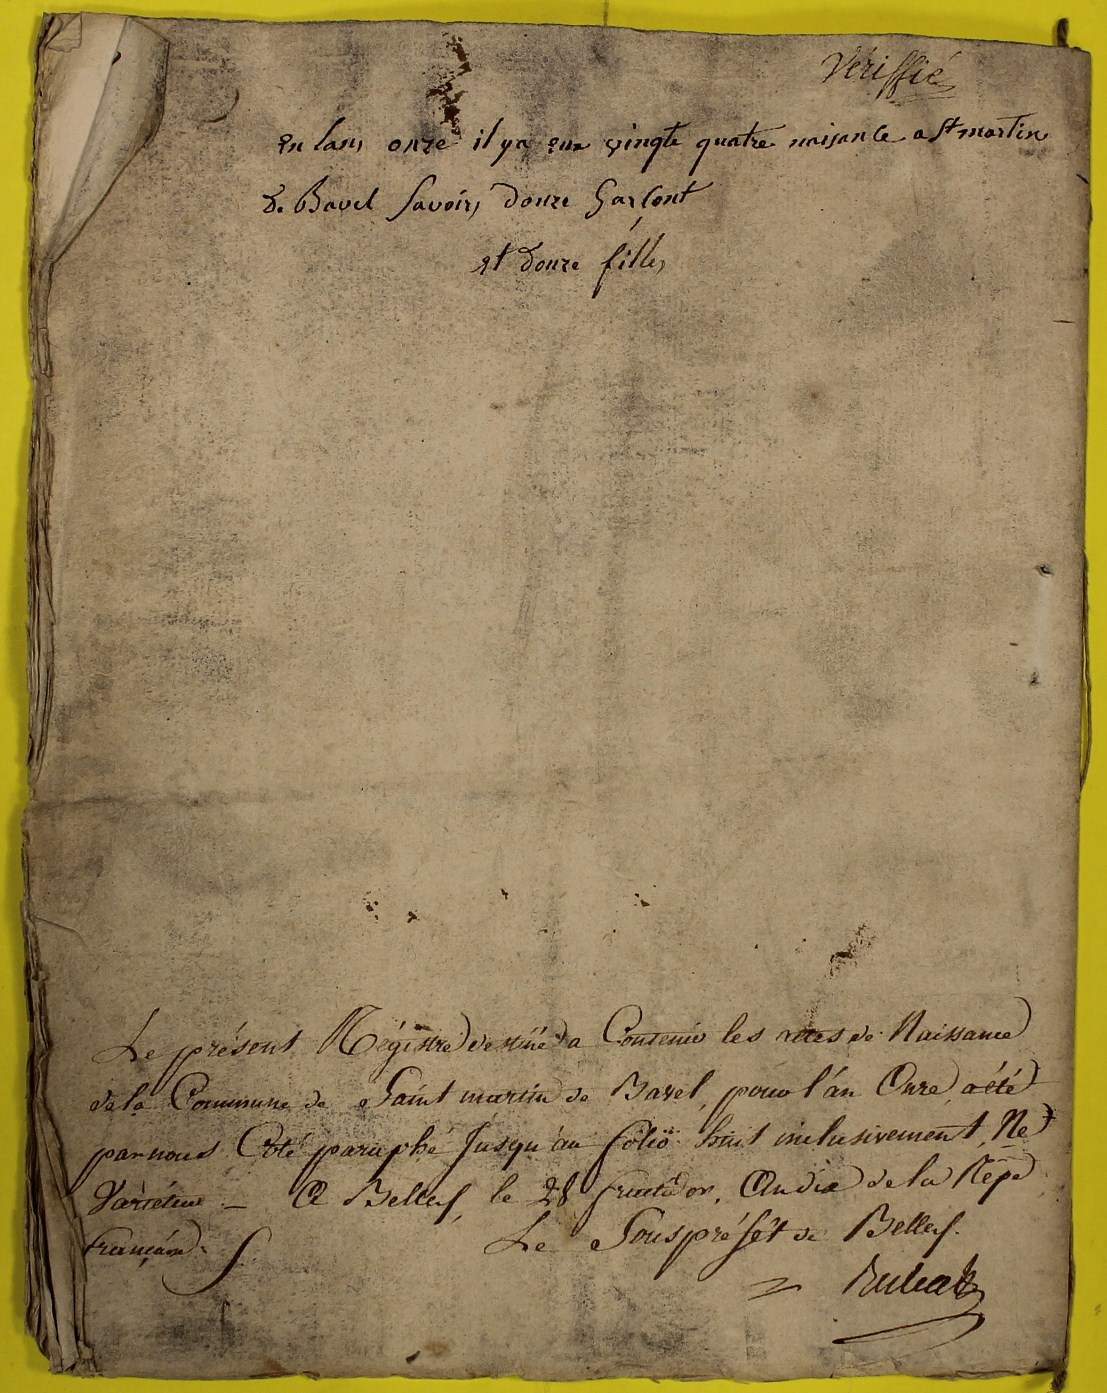 Vériffié
en lans onze il ya eux vingte quatre naisance a St martin
de Bavel Savoir, douze Garsont
et douze filles
Le présent Régistre destiné a Contenir les actes de Naissance
de la Commune de Saint martin de Bavel, pour l'an Onze, a été
par nous Coté paraphé Jusqu'au folio huit inclusivement, Ne
Varietur — A Belley, le 28 fructidor, An dix de la Répe
française
Le Souspréfét de Belley.